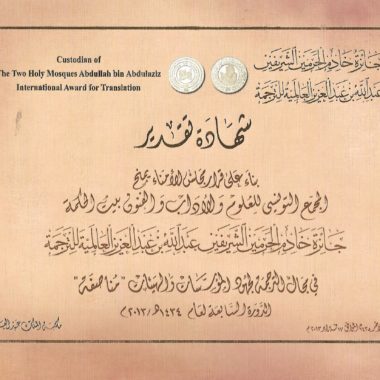 Custodian of
The Two Holy Mosques Abdullah bin Abdulaziz
International Award for Translation
جائزة خادم الحرمين الشريفين
عبدالله بن عبدالعزيز العالمية للترجمة
شهادة تقدير
بناء على قرار مجلس الأمناء بمنح
المجمع التونسي للعلوم والآداب والفنون بيت الحكمة
جائزة خادم الحرمين الشريفين عبدالله بن عبدالعزيز العالمية للترجمة
في مجال الترجمة لجهود المؤسسات والهيئات "مناصفة"
الدورة السابعة لعام ١٤٣٤هـ/٢٠١٣م
مكتبة الملك عبد